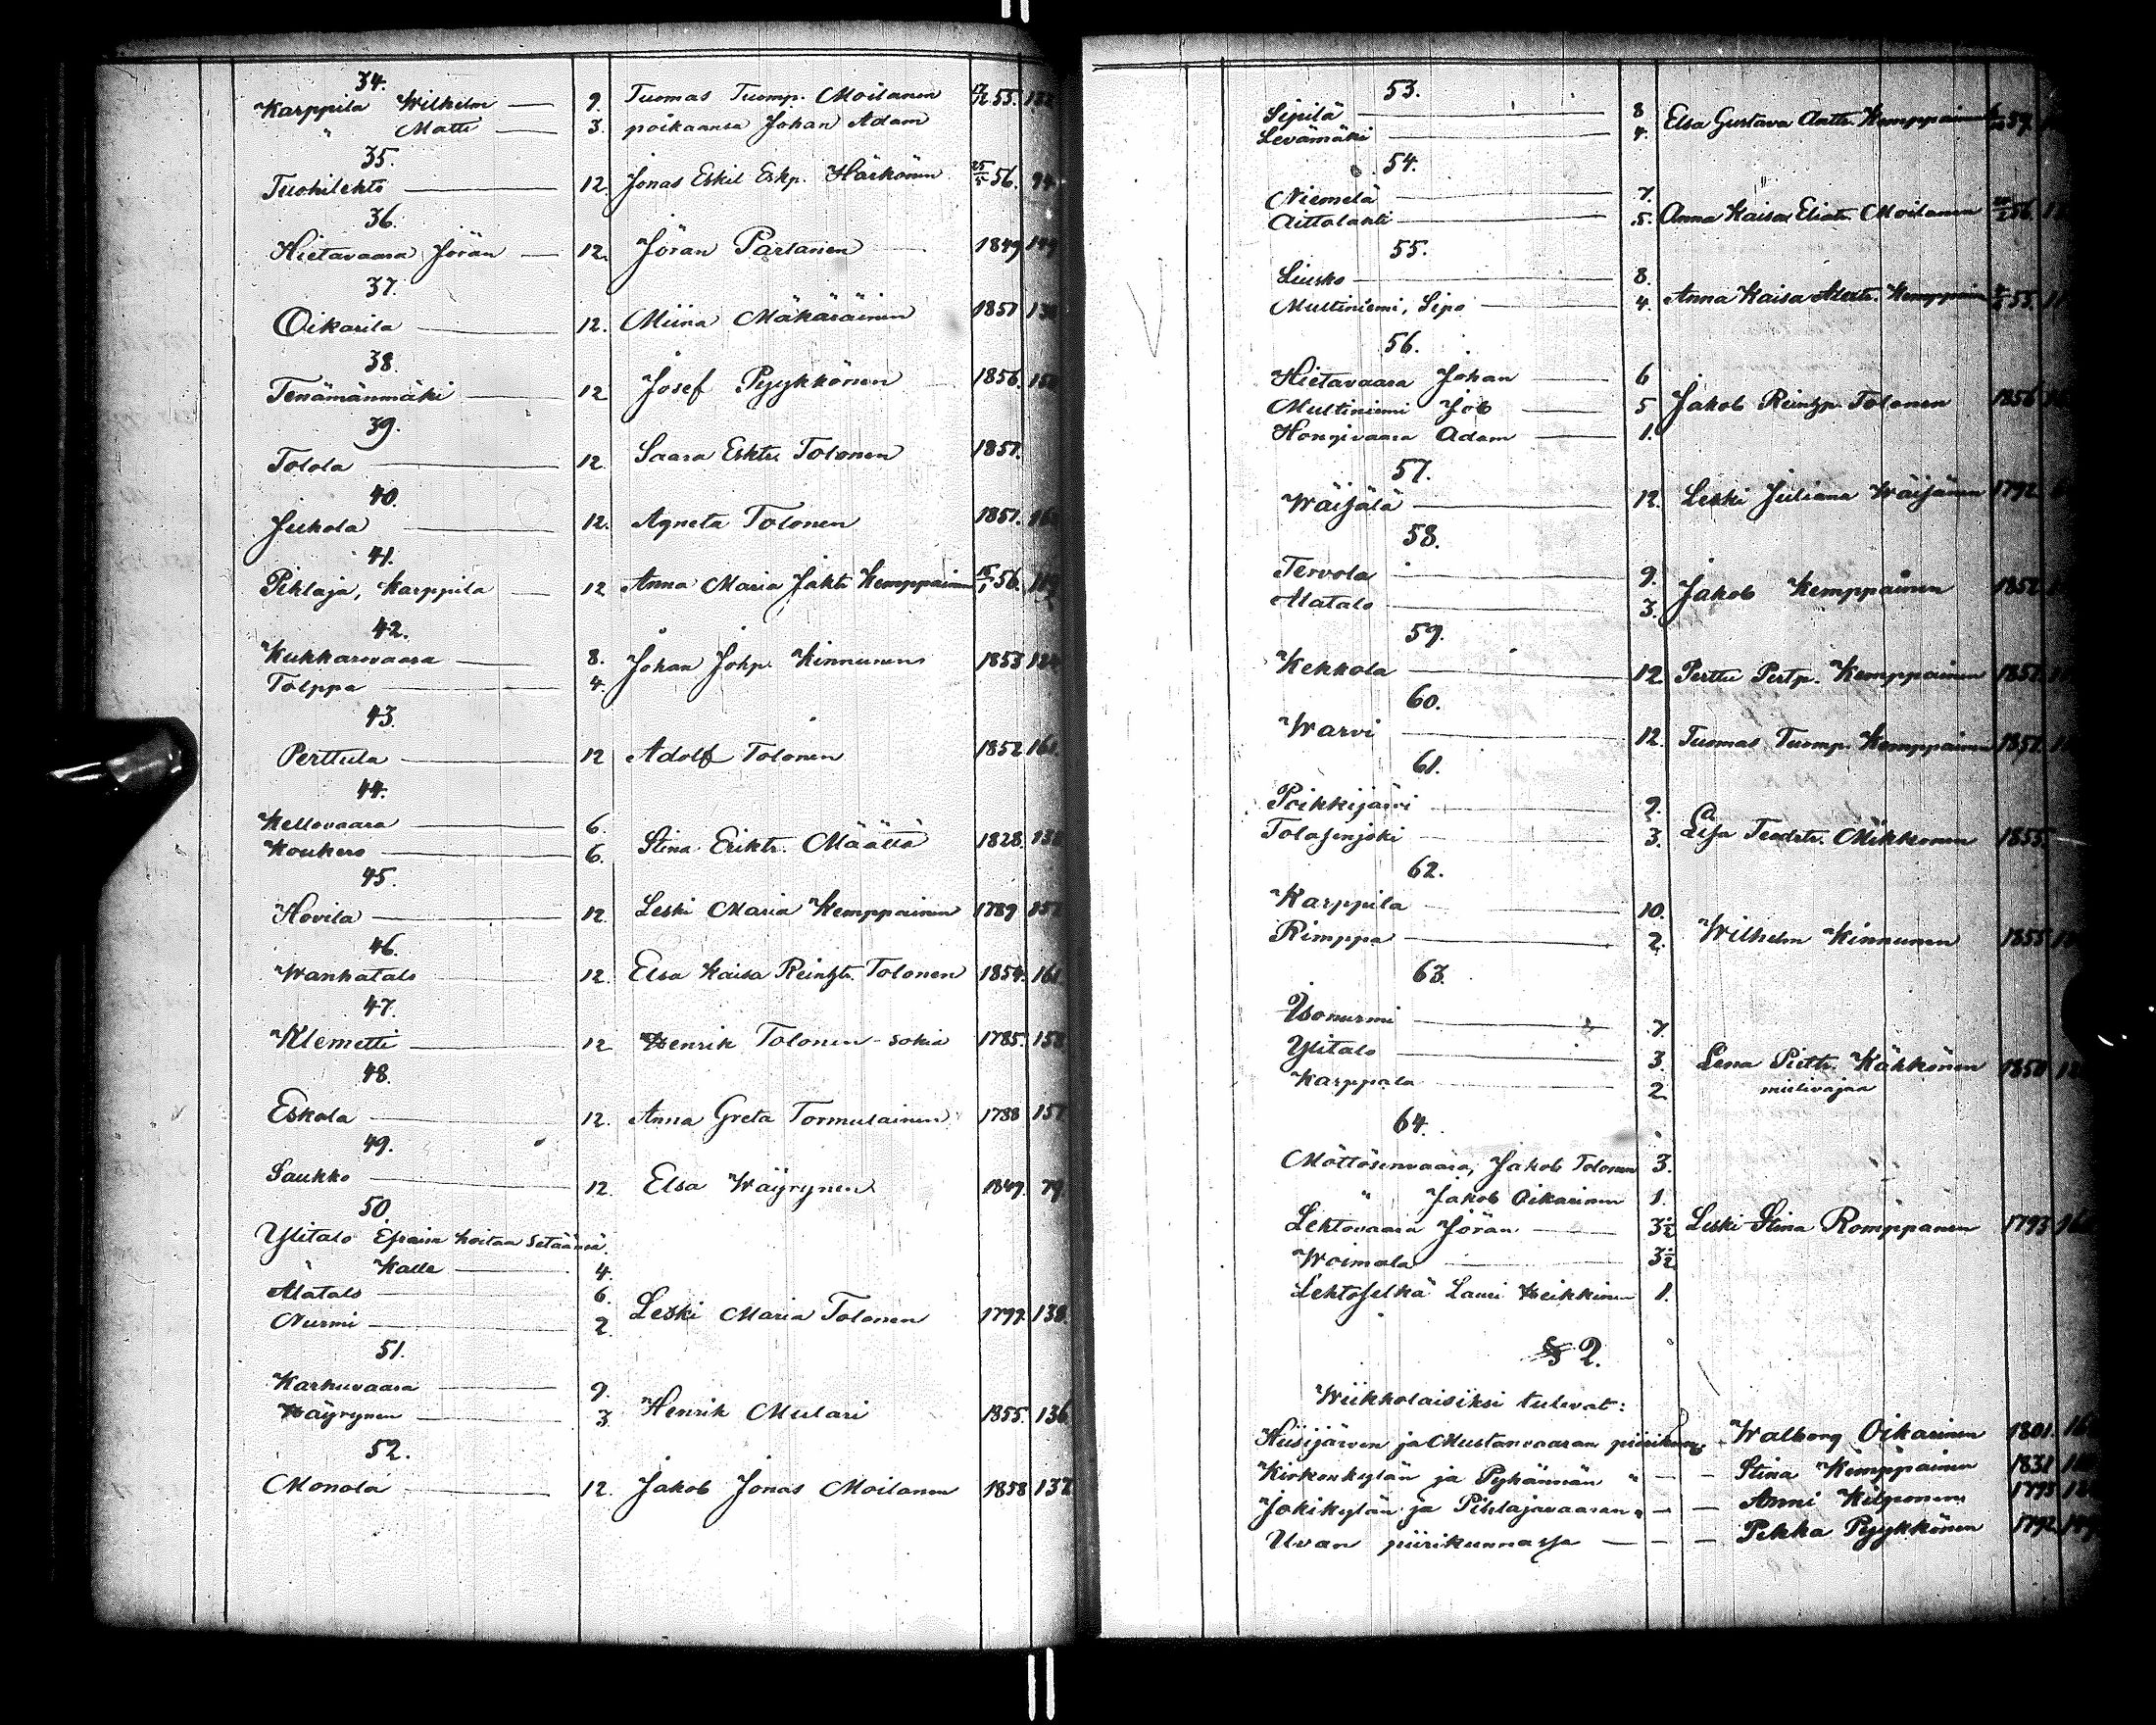 34.
Karppila Wilhelm — 9. Tuomas Tuomp. Moilanen 55.
" Matti — 3. poikaansa Johan Adam
35.
Tuohilehto — 12. Jonas Eskil Eskp. Härkönen 25/5 56.
36.
Hietavaara Jöran — 12. Jöran Partanen 1849
37.
Oikarila — 12. Miina Mäkäräinen 1851
38.
Tenämänmäki — 12 Josef Pyykkönen 1856.
39.
Tolola — 12. Saara Esktr. Tolonen 1851.
40.
Jukola 12. Agneta Tolonen 1851.
41.
Pihlaja, Karppila — 12 Anna Maria Jakt. Kemppainen 56.
42.
Kukkarovaara — 8. Johan Johp. Kinnunen 1853
Tolppa — 4.
43.
Perttula — 12 Adolf Tolonen 1852 161.
44.
Kellovaara — 6.
Koukero — 6. Stina Eriktr. Määttä 1828.
45.
Hovila — 12. Leski Maria Kemppainen 1789
46.
Wanhatalo 12. Elsa Kaisa Reinhtr. Tolonen 1854. 161
47.
Klemetti — 12 Henrik Tolonen - sokia 1785. 158
48.
Eskola — 12. Anna Greta Tormulainen 1788 157
49.
Saukko — 12. Elsa Wäyrynen 1849. 79.
50
Ylitalo Efraim hoitaa setäänsä.
" Kalle — 4.
Alatalo — 6.
Nurmi — 2. Leski Maria Tolonen 138.
51.
Karhuvaara — 9.
Wäyrynen — 3. Henrik Mulari 1855. 136
52.
Monola — 12. Jakob Jonas Moilanen 1858 137
53.
Sipilä — 8
Levämäki — 4. Elsa Gustava Anttr. Kemppainen 59.
54.
Niemelä — 7.
Aittolahti — 5. Anna Kaisa Eliatr. Moilanen 56.
55.
Liusko — 8.
Multiniemi, Sipo — 4. Anna Kaisa Kemppain 55.
56.
Hietavaara Johan — 6
Multiniemi Job — 5 Jakob Reinhp. Tolonen 1856
Hongivaara Adam — 1.
57.
Wäisälä — 12. Leski Juliana Wäisänen 1792
58.
Tervola — 9.
Alatalo — 3. Jakob Kemppainen 1852
59.
Kekkola — 12 Perttu Pertp. Kemppainen 1851
60.
Warvi — 12. Tuomas Tuomp. Kemppainen 1851.
61.
Poikkijärvi — 9.
Tolasenjoki — 3. Lisa Teodrtr. Mikkonen 1855.
62.
Karppila — 10.
Rimppa — 2. Wilhelm Kinnunen 1855.
63.
Isonurmi — 7.
Ylitalo — 3. Lena Piettr. Kähkönen 1850
Karppala 2 mielivajaa
64.
Möttösenvaara, Jakob Tolonen 3.
" Jakob Oikarinen 1.
Lehtovaara Jöran — 3½ Leski Stina Romppanen 1793
Woimala — 3½
Lehtoselkä Lauri Heikkinen 1.
§ 2.
Wiikkolaisiksi tulevat:
Hiisijärven ja Mustanvaaran piirikun - Walborg Oikarinen 1801.
Kirkonkylän ja Pyhännän " — — Stina Kemppainen 1831
Jokikylän ja Pihlajavaaran " — — Anni Kilponen 1795
Uvan piirikunnassa — — — Pekka Pyykkönen 1792